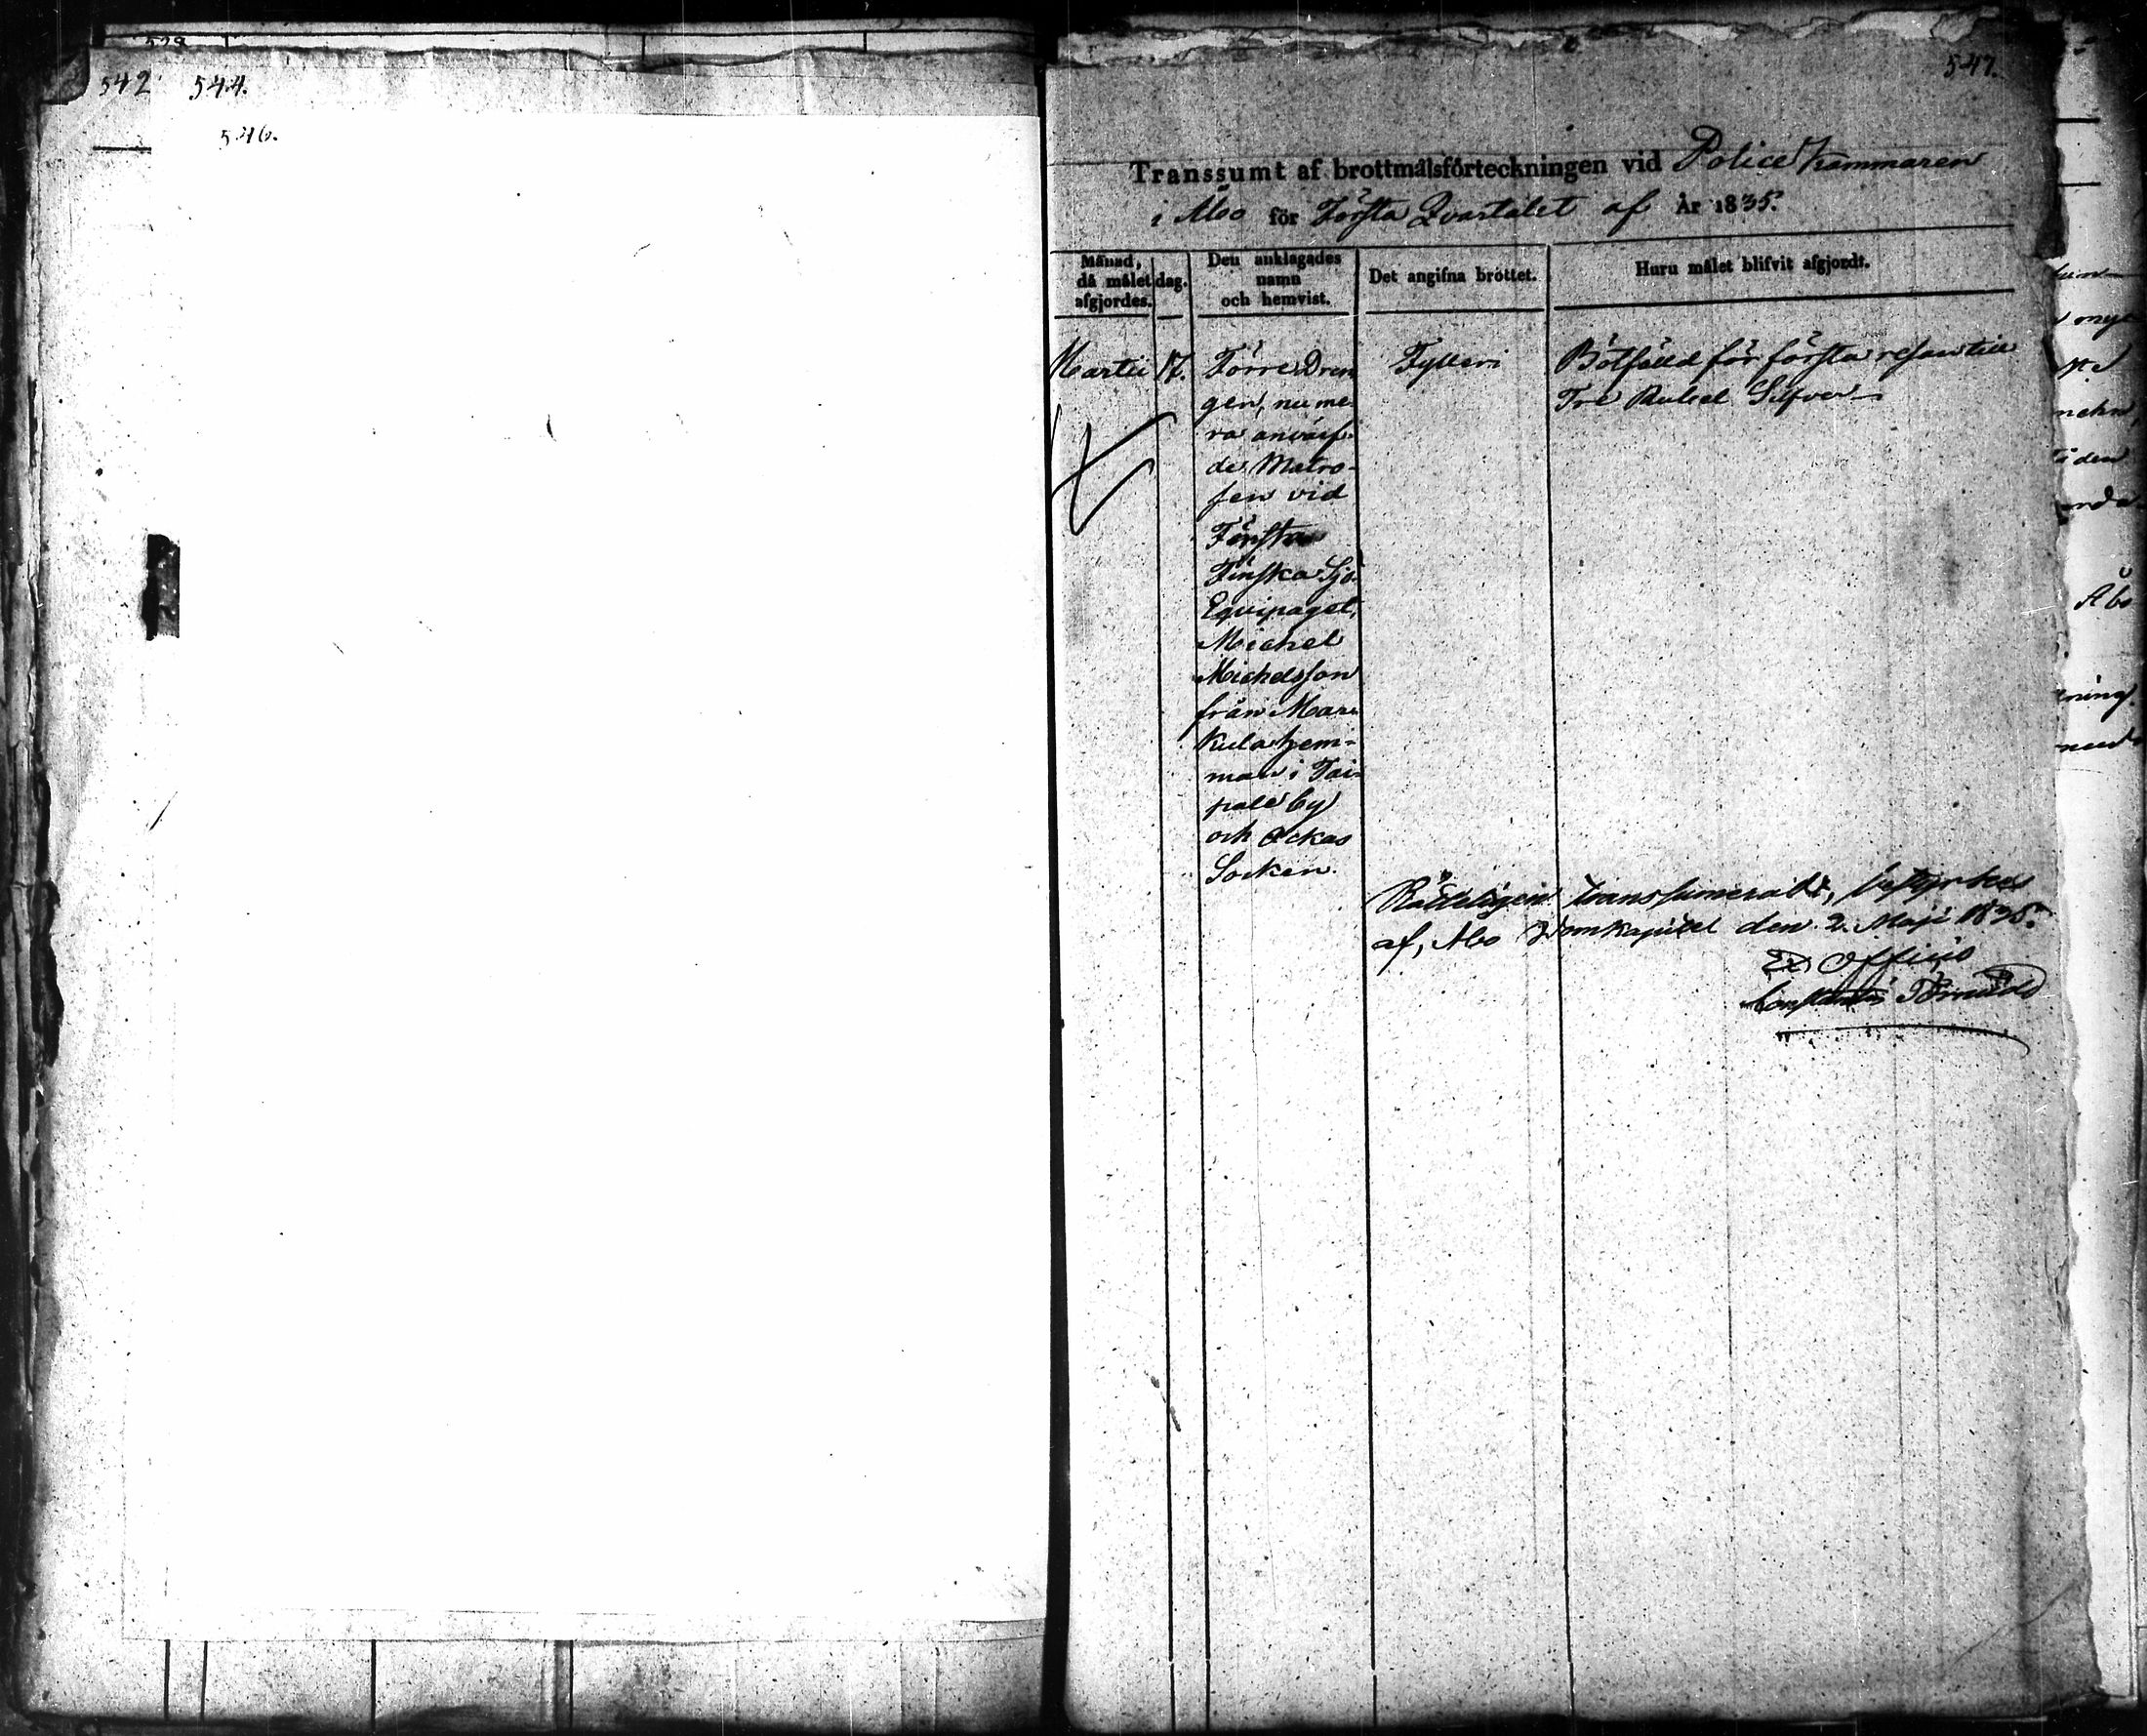 542
544.
546.
547.
Transsumt af brottmålsförteckningen vid Police Kammaren
i Åbo för Första Qvartalet af År 1835.
Månad, då målet afgjordes.
dag.
Den anklagades namn och hemvist.
Det angifna brottet.
Huru målet blifvit afgjordt.
Martii
17.
Förre Dren
gen, nu me
ra anvärf
de Matro-
sen vid
Första
Finska Sjö
Equipaget,
Michel
Michelsson
från Mar
kula hem-
man i Tai-
pale by
och Ackas
Socken.
Fylleri
Bötfälld för första resan till
Tre Rubel Silfver
Rätteligen transsumeradt, bestyrkes
af, Åbo Domkapitel den 2. Maji 1835.
Ex Officio
Åbo